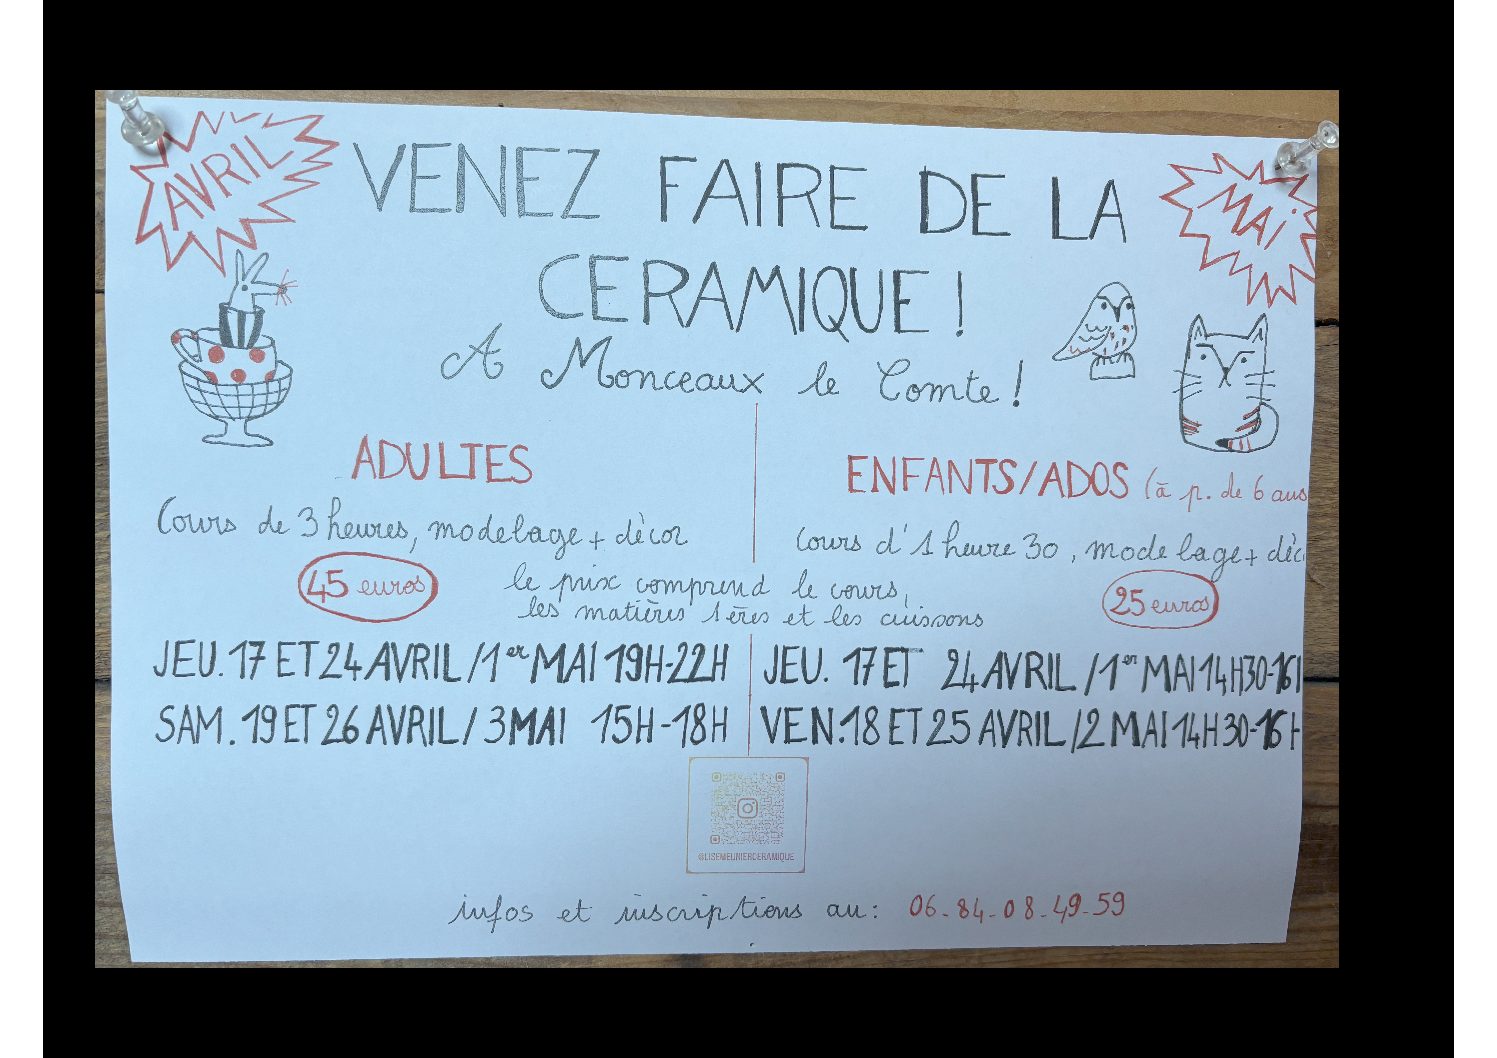 AVRIL
MAI
VENEZ FAIRE DE LA
CERAMIQUE !
A Monceaux le Comte !
ADULTES
Cours de 3 heures, modelage + décor
45 euros
ENFANTS/ADOS (à p. de 6 ans
Cours d'1 heure 30, modelage + déc
25 euros
le prix comprend le cours,
les matières 1ères et les cuissons
JEU. 17 ET 24 AVRIL / 1er MAI 19H-22H
SAM. 19 ET 26 AVRIL / 3 MAI 15H-18H
JEU. 17 ET 24 AVRIL / 1er MAI 14H30-16H
VEN. 18 ET 25 AVRIL / 2 MAI 14H30-16H
@LISEMEUNIERCERAMIQUE
infos et inscriptions au : 06-84-08-49-59